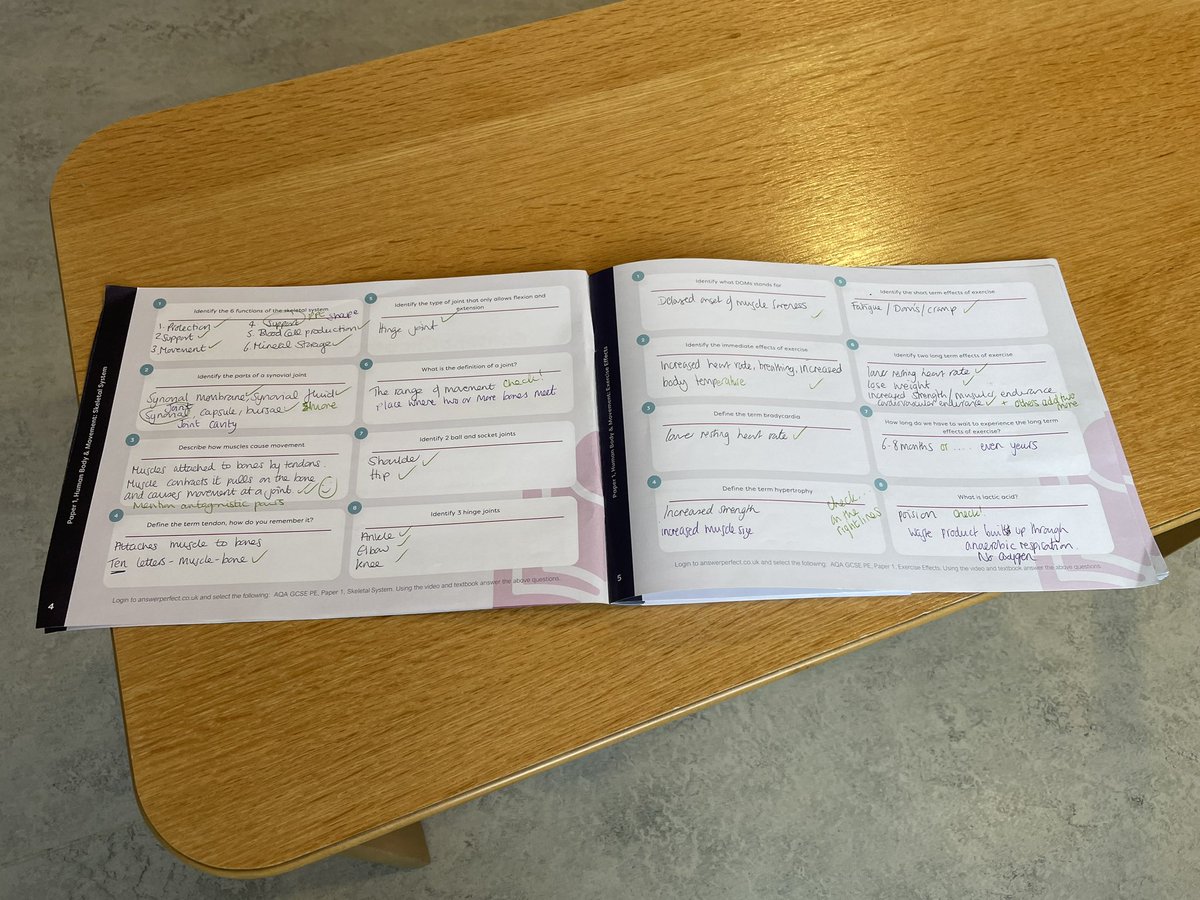 Paper 1, Human Body & Movement: Skeletal System
4
1
Identify the 6 functions of the skeletal system
1. Protection
2 Support
3 Movement
4. Support shape
5. Blood Cell production
6. Mineral Storage
2
Identify the parts of a synovial joint
Synovial membrane, Synovial fluid
Synovial joint capsule, bursae more
Joint cavity
3
Describe how muscles cause movement
Muscles attached to bones by tendons.
Muscle contracts it pulls on the bone
and causes movement at a joint.
Mention antagnistic pairs
4
Define the term tendon, how do you remember it?
Attaches muscle to bones
Ten letters - muscle - bone
5
Identify the type of joint that only allows flexion and
extension
Hinge joint
6
What is the definition of a joint?
The range of movement check!
place where two or more bones meet
7
Identify 2 ball and socket joints
Shoulder
Hip
8
Identify 3 hinge joints
Ankle
Elbow
Knee
Login to answerperfect.co.uk and select the following: AQA GCSE PE, Paper 1, Skeletal System. Using the video and textbook answer the above questions.
Paper 1, Human Body & Movement: Exercise Effects
5
1
Identify what DOMs stands for
Delayed onset of muscle soreness
2
Identify the immediate effects of exercise
Increased heart rate, breathing, increased
body temperature
3
Define the term bradycardia
lower resting heart rate
4
Define the term hypertrophy
Increased strength
increased muscle size
check...
on the
right lines
5
Identify the short term effects of exercise
Fatigue / Doms / cramp
6
Identify two long term effects of exercise
lower resting heart rate
lose weight
Increased strength / muscular endurance
cardiovascular endurance + others add two
more
7
How long do we have to wait to experience the long term
effects of exercise?
6-8 months or ..... even years
8
What is lactic acid?
poision check!
waste product built up through
anaerobic respiration.
No oxygen
Login to answerperfect.co.uk and select the following: AQA GCSE PE, Paper 1, Exercise Effects. Using the video and textbook answer the above questions.